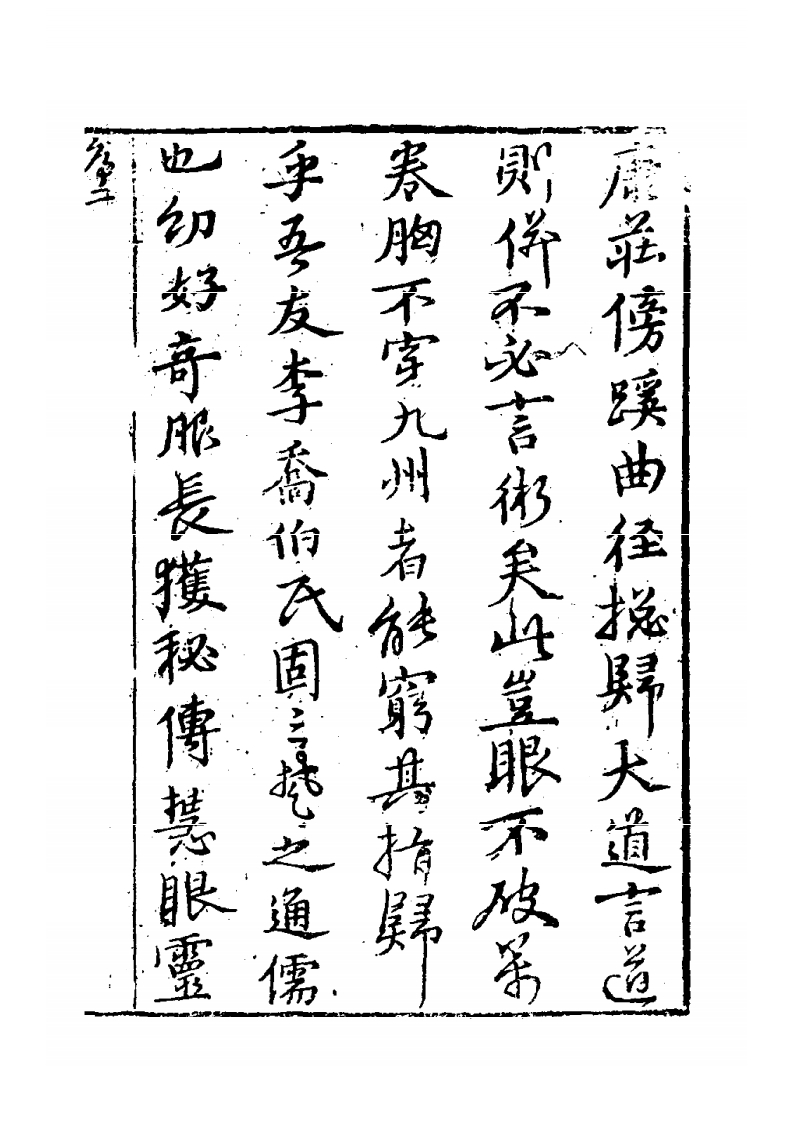 康莊傍蹊曲径捴歸大道言道
則併不必言術矣此豈眼不破萬
卷胸不穿九州者能窮其指歸
乎吾友李喬伯氏固三楚之通儒
也幼好奇服長獲秘傳慧眼靈